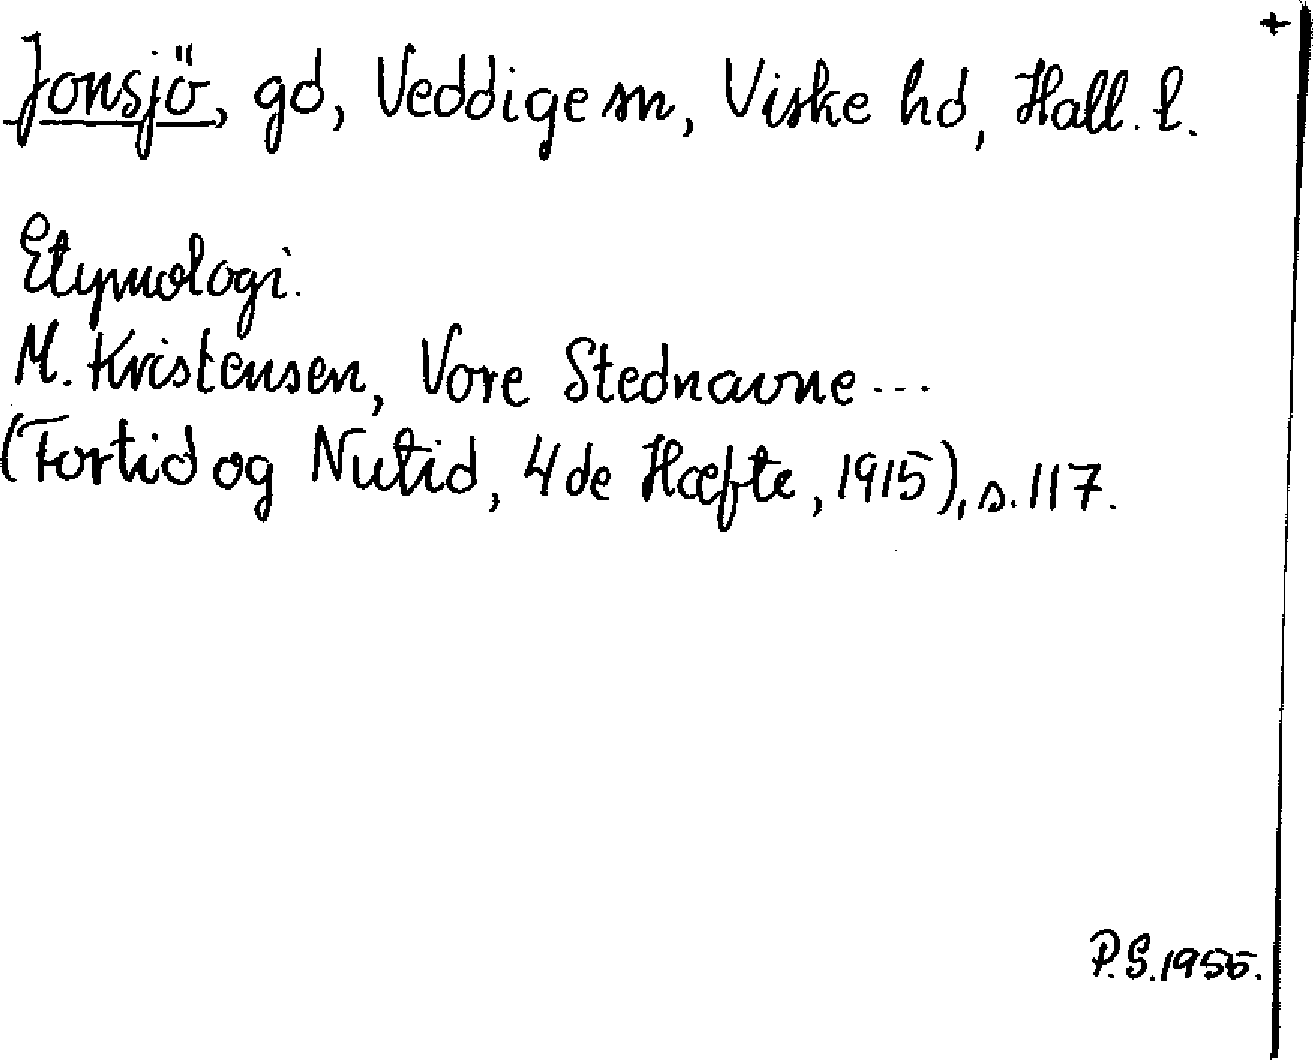 +
Jonsjö, gd, Veddige sn, Viske hd, Hall. l.
Etymologi.
M. Kristensen, Vore Stednavne ---
(Fortid og Nutid, 4de Hæfte, 1915), s. 117.
P.S. 1955.